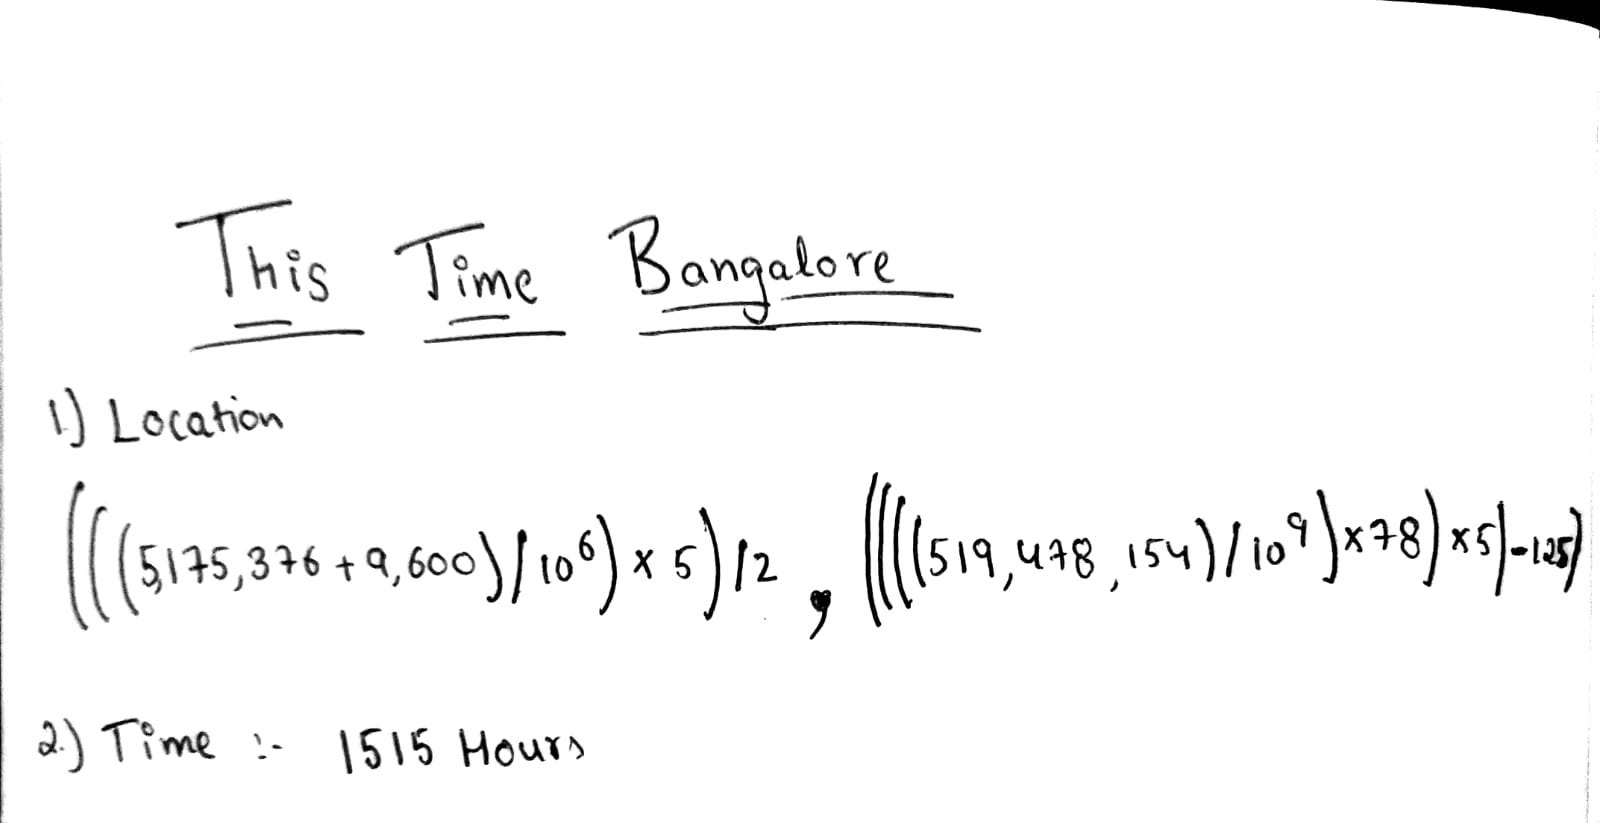 This Time Bangalore
1.) Location
(((5,175,376 + 9,600)/10⁶) × 5)/2 , ((((519,478,154)/10⁹) × 78) × 5) - 125)
2.) Time :- 1515 Hours